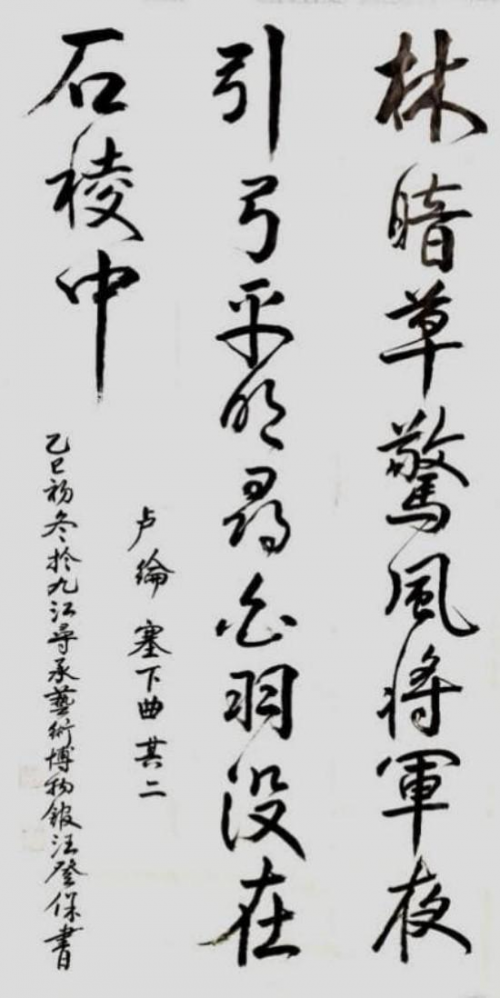 林暗草驚風將軍夜
引弓平明尋白羽没在
石稜中
卢綸塞下曲其二
乙巳初冬於九江尋承藝術博物館汪登保書